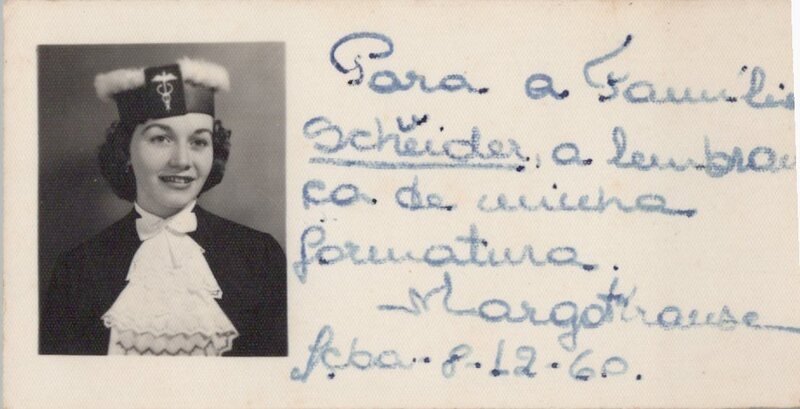 Para a Família
Schëider, a lembran
ça de minha
formatura.
Margot Krause
Scba. 8-12-60.